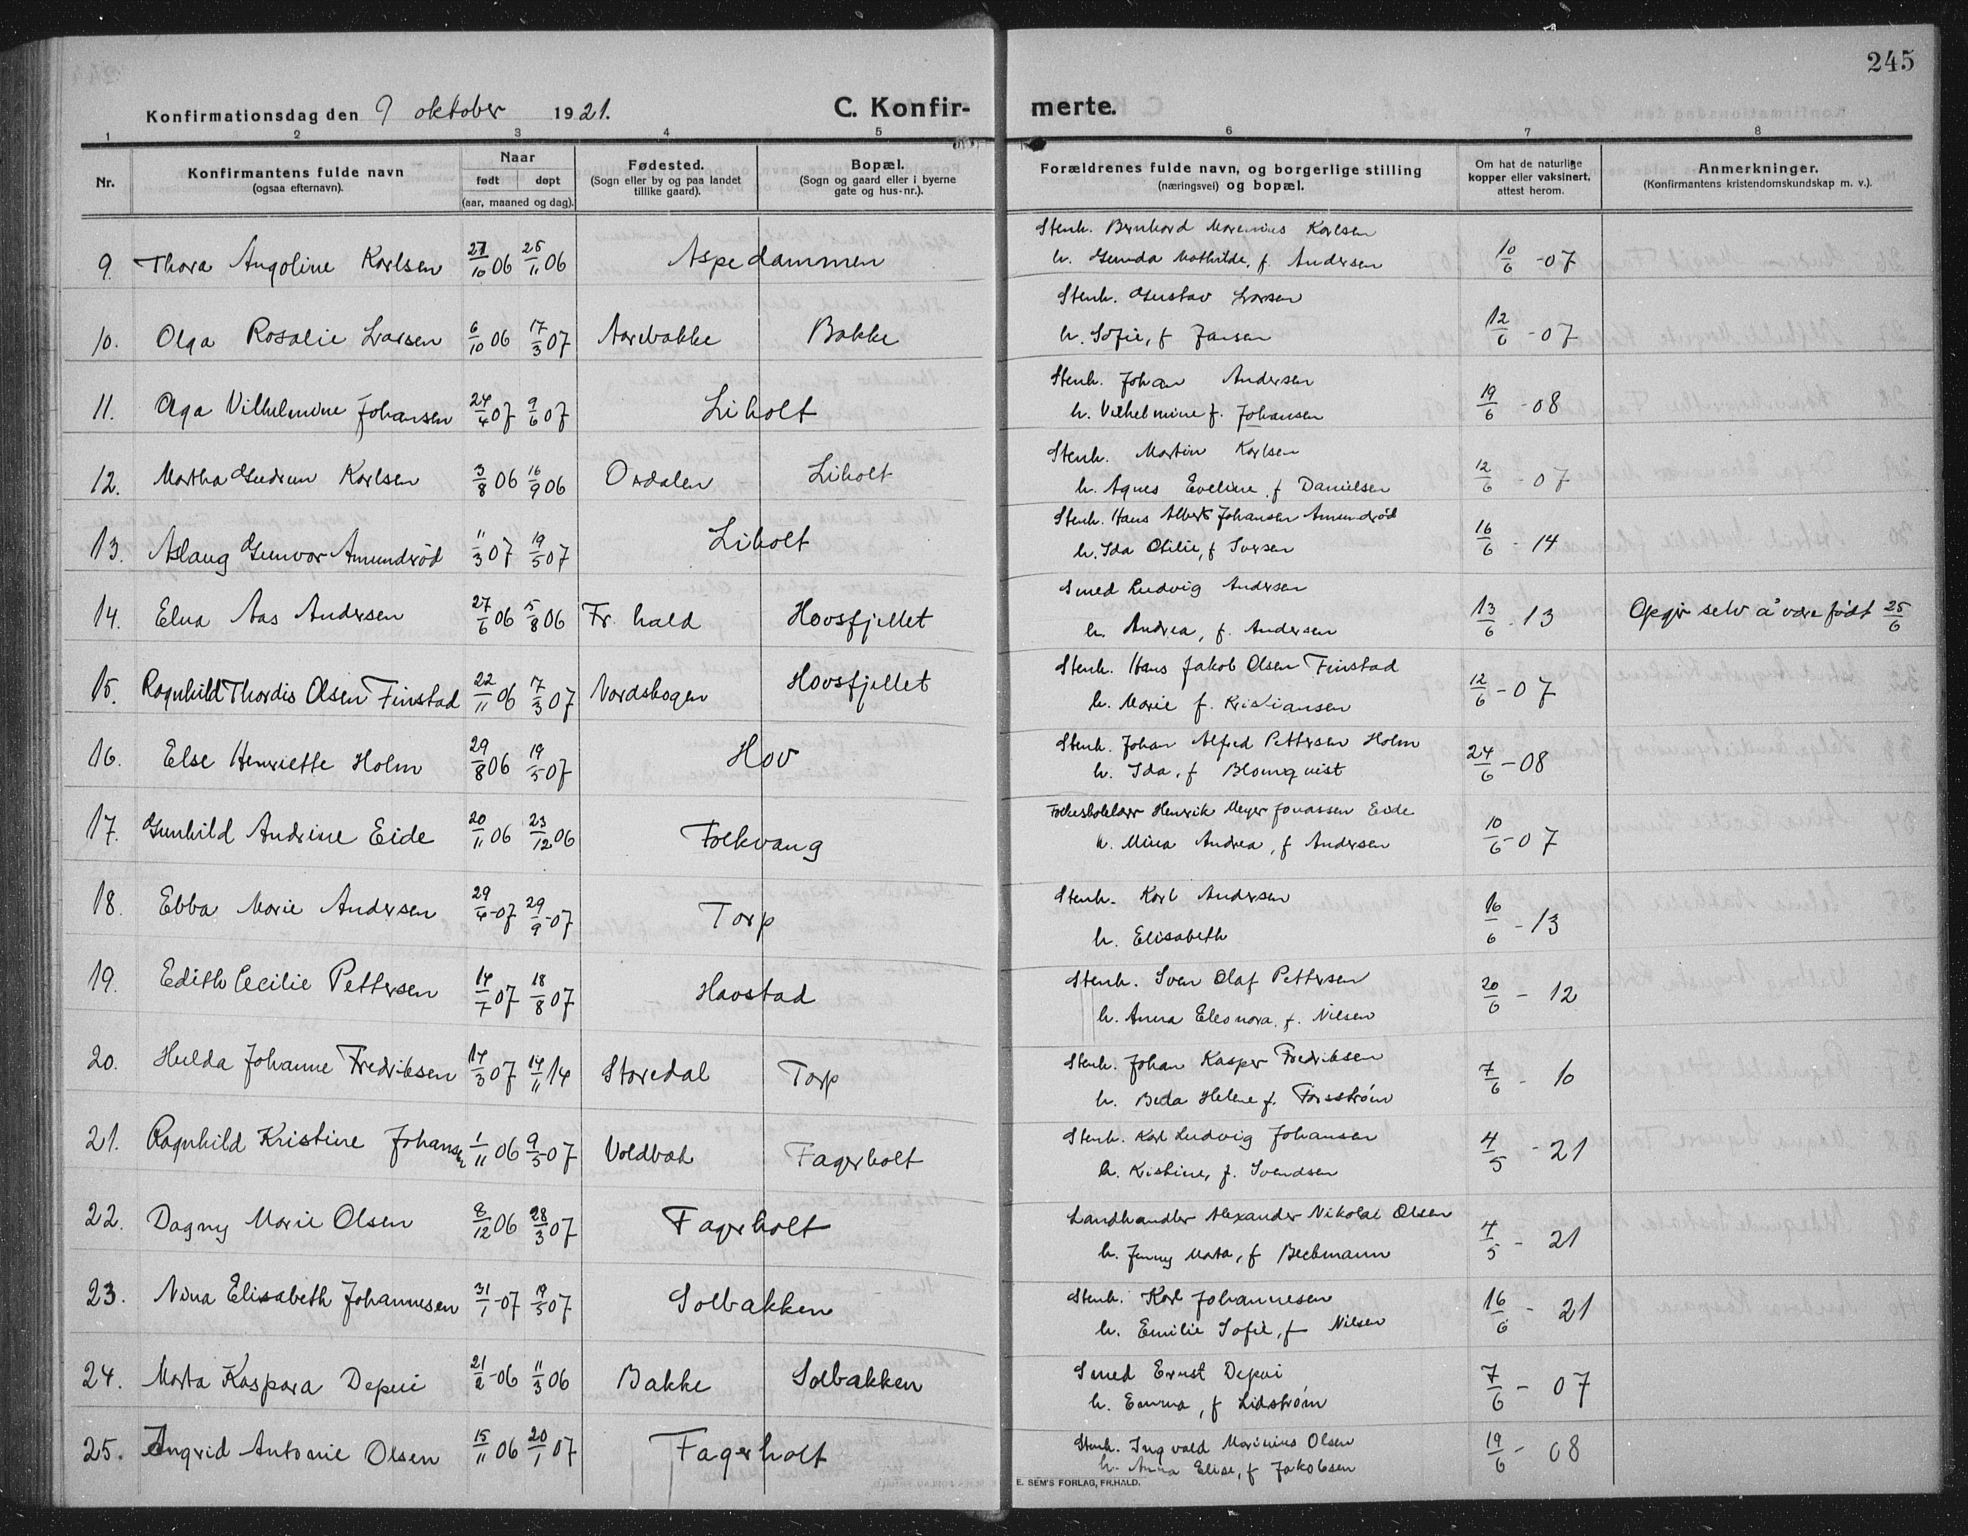 245
Konfirmationsdag den 9 oktober 1921. C. Konfir- merte.
1 2 3 4 5 6 7 8
Nr. Konfirmantens fulde navn (ogsaa efternavn). Naar født døpt (aar, maaned og dag). Fødested. (Sogn eller by og paa landet tillike gaard). Bopæl. (Sogn og gaard eller i byerne gate og hus-nr.). Forældrenes fulde navn, og borgerlige stilling (næringsvei) og bopæl. Om hat de naturlige kopper eller vaksinert, attest herom. Anmerkninger. (Konfirmantens kristendomskundskap m. v.).
Stenh. Bernhard Marenius Karlsen
9. Thora Angoline Karlsen 27/10 06 25/11 06 Aspedammen h. Gunda Mathilde, f. Andersen 10/6 -07
Stenh. Gustav Larsen
10. Olga Rosalie Larsen 6/10 06 17/3 07 Aarebakke Bakke h. Sofie, f Jansen 12/6 -07
Stenh. Johan Andersen
11. Olga Vilhelmine Johansen 24/4 07 9/6 07 Liholt h. Vilhelmine f. Johansen 19/6 -08
Stenh. Martin Karlsen
12. Martha Gudrun Karlsen 3/8 06 16/9 06 Ordalen Liholt h. Agnes Eveline, f Danielsen 12/6 - 07
Stenh. Hans Albert Johansen Amundrød
13. Aslaug Gunvor Amundrød 11/3 07 19/5 07 Liholt h. Ida Otilie, f Ivarsen 16/6 - 14
Smed Ludvig Andersen
14. Elna Aas Andersen 27/6 06 5/8 06 Fr. hald Hovsfjellet h. Andrea, f. Andersen 13/6 - 13 Opgir selv å være født 25/6
Stenh. Hans Jakob Olsen Finstad
15. Ragnhild Thordis Olsen Finstad 22/11 06 17/3 07 Nordskogen Hovsfjellet h. Marie f. Kristiansen 12/6 - 07
Stenh. Johan Alfred Pettersen Holm
16. Else Henriette Holm 29/8 06 19/5 07 Hov h. Ida, f Blomqvist 24/6 - 08
Folkeskolelærer Henrik Meyer Jonassen Eide
17. Gunhild Andrine Eide 20/11 06 23/12 06 Folkvang h. Mina Andrea, f Andersen 10/6 - 07
Stenh. Karl Andersen
18. Ebba Marie Andersen 29/4 -07 29/9 -07 Torp h. Elisabeth 16/6 - 13
Stenh. Sven Olaf Pettersen
19. Edith Cecilie Pettersen 14/7 07 18/8 07 Havstad h. Anna Eleonora f. Nilsen 20/6 - 12
Stenh. Johan Kasper Fredriksen
20. Hulda Johanne Fredriksen 14/3 07 14/11 14 Storedal Torp h. Beda Helene f. Forsstrøm 7/6 - 10
Stenh. Karl Ludvig Johansen
21. Ragnhild Kristine Johansen 1/11 06 9/5 07 Voldbak Fagerholt h. Kristine, f. Svendsen 4/5 - 21
Landhandler Alexander Nikolai Olsen
22. Dagny Marie Olsen 8/12 06 28/3 07 Fagerholt h. Jenny Marta, f Beckmann 4/5 - 21
Stenh. Karl Johannesen
23. Nina Elisabeth Johannesen 31/1 -07 19/5 07 Solbakken h. Emilie Sofie, f Nilsen 16/6 - 21
Smed Ernst Depui
24. Marta Kaspara Depui 21/2 -06 11/3 06 Bakke Solbakken h. Emma, f Lidstrøm 7/6 - 07
Stenh. Ingvald Marinius Olsen
25. Ingrid Antonie Olsen 15/11 06 20/1 07 Fagerholt h. Anna Elise, f Jakobsen 19/6 - 08
E. SEM'S FORLAG, FR.HALD.